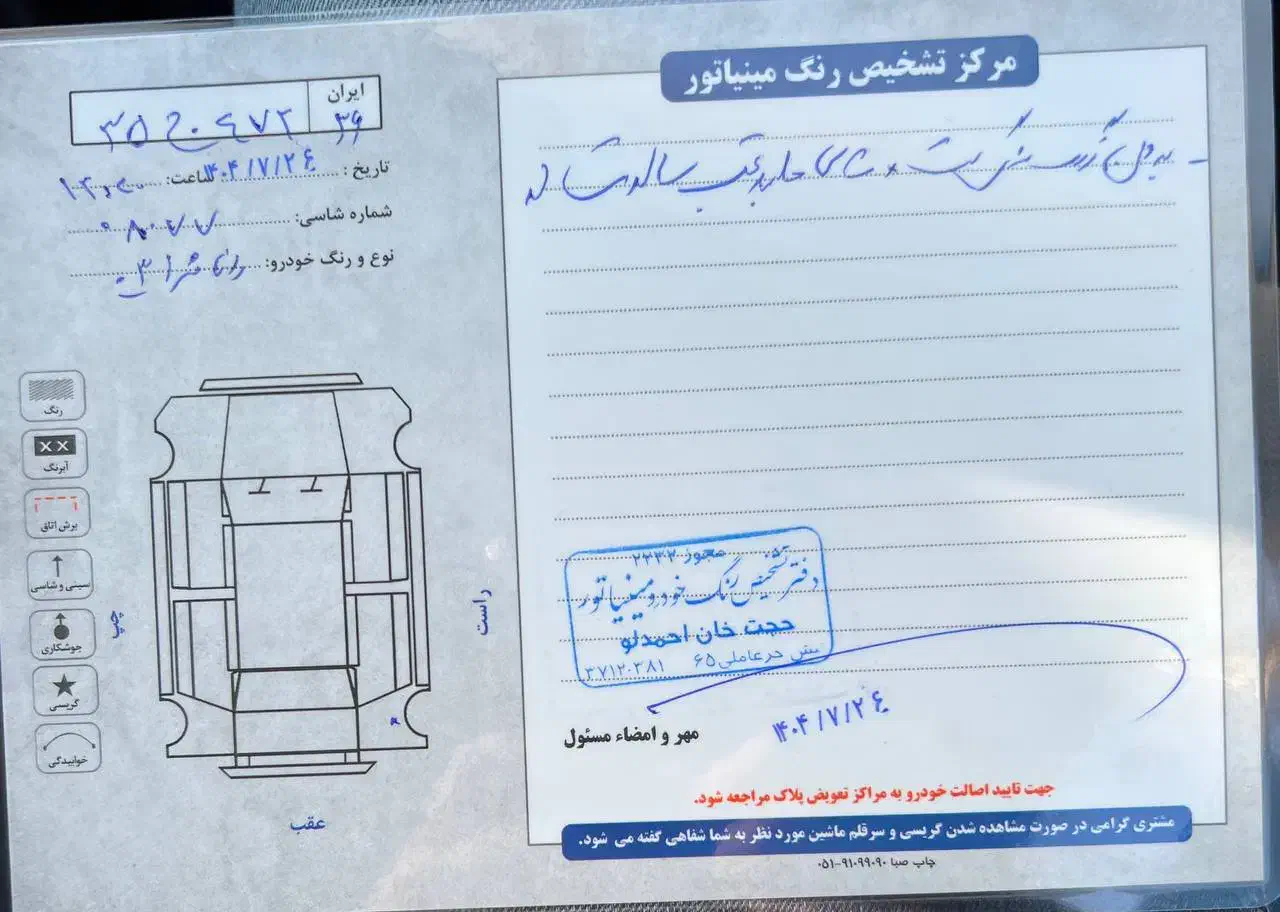 مرکز تشخیص رنگ مینیاتور
ایران
۳۶
تاریخ : ۱۴۰۴/۷/۲۴ ساعت:
شماره شاسی: ۰۸۰۷۷
نوع و رنگ خودرو:
رنگ
آبرنگ
برش اتاق
سینی و شاسی
جوشکاری
گریسی
خوابیدگی
چپ
راست
عقب
مجوز ۲۳۳۲
دفتر تشخیص رنگ خودرو مینیاتور
حجت خان احمدلو
نبش حرعاملی ۶۵ ۳۷۱۲۰۳۸۱
مهر و امضاء مسئول
۱۴۰۴/۷/۲۴
جهت تایید اصالت خودرو به مراکز تعویض پلاک مراجعه شود.
مشتری گرامی در صورت مشاهده شدن گریسی و سرقلم ماشین مورد نظر به شما شفاهی گفته می شود.
چاپ صبا ۹۱۰۹۹۰۹۰-۰۵۱